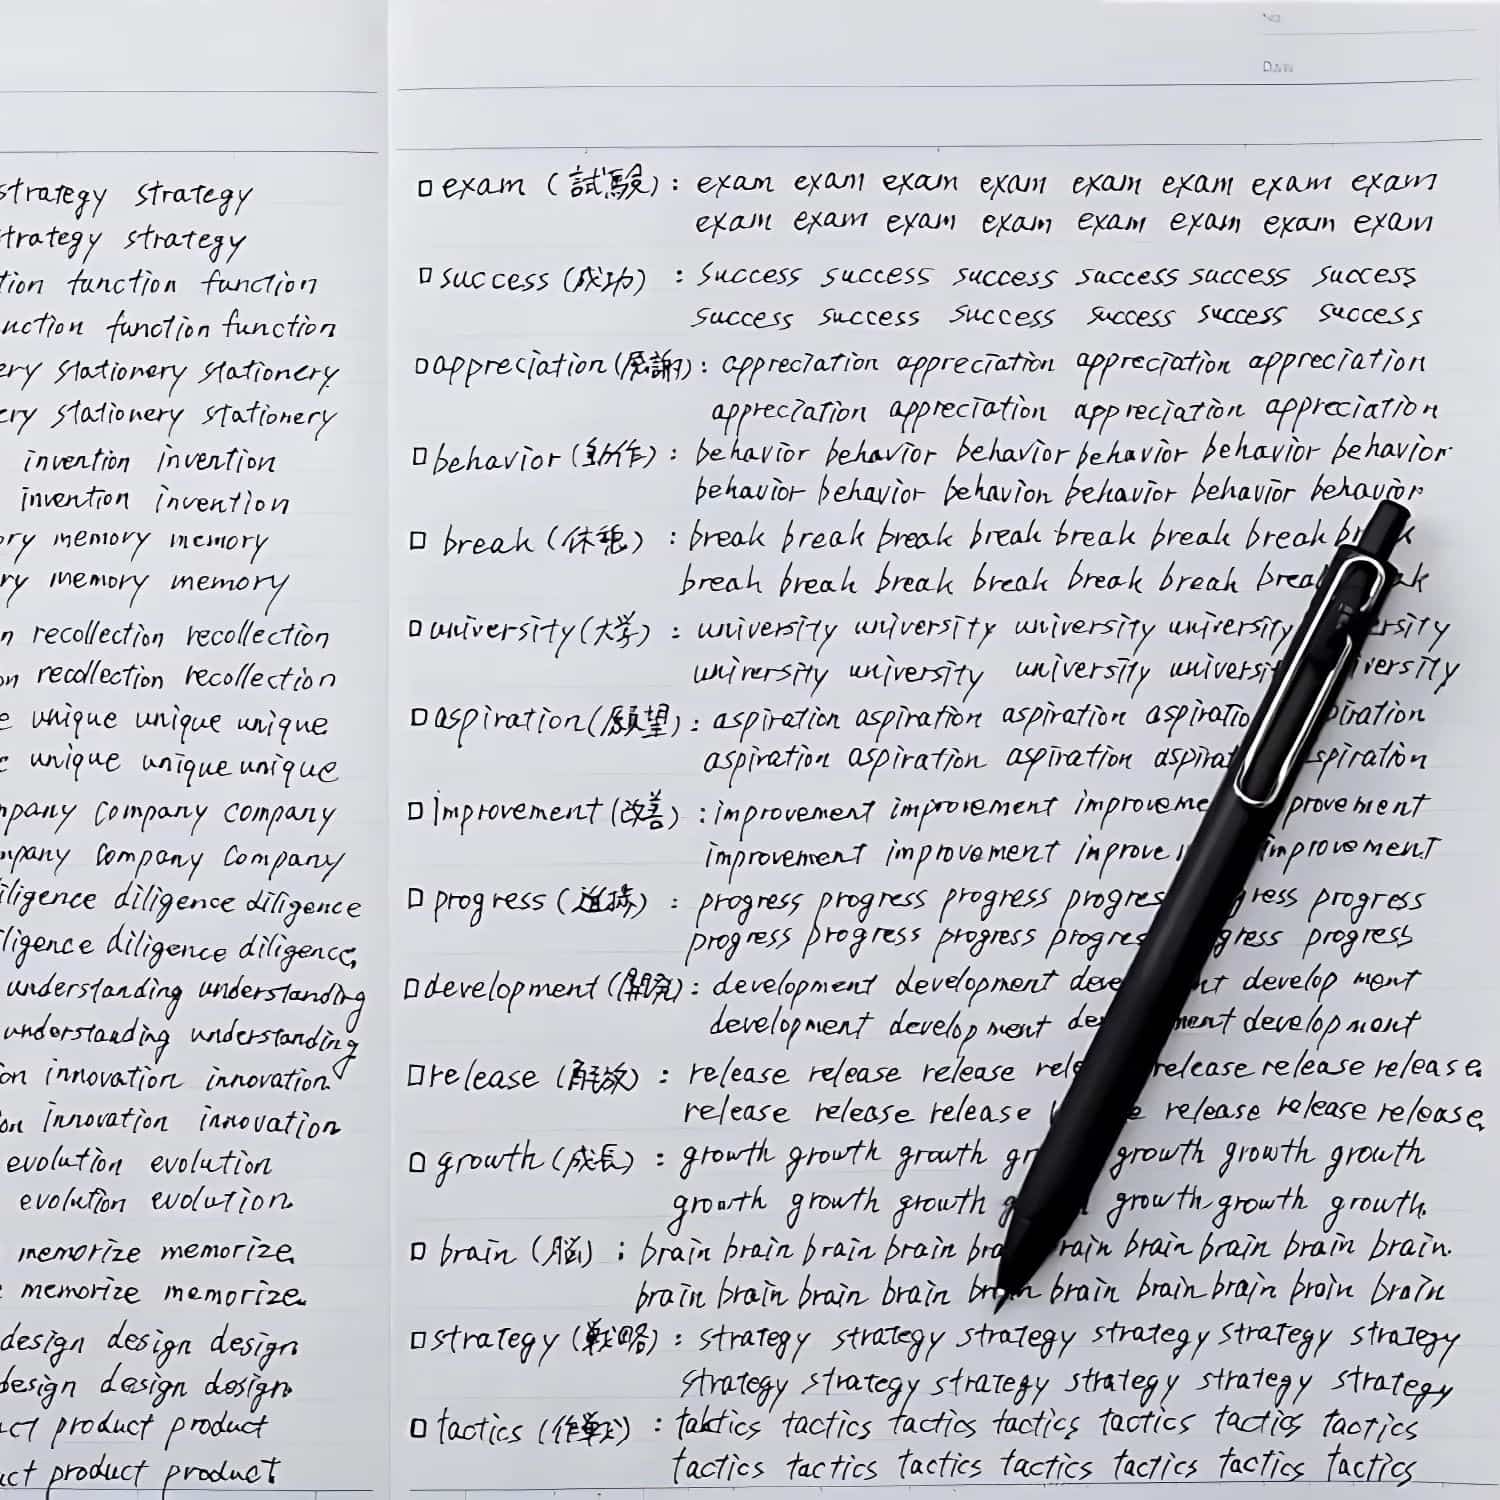 strategy strategy
strategy strategy
function function
function function
stationery stationery
stationery stationery
invention invention
invention invention
memory memory
memory memory
recollection recollection
recollection recollection
unique unique unique
unique unique unique
company company
company company
diligence diligence
diligence diligence
understanding understanding
understanding understanding
innovation innovation
innovation innovation
evolution evolution
evolution evolution
memorize memorize
memorize memorize
design design design
design design design
product product
product product
No.
Date
□ exam (試験) : exam exam exam exam exam exam exam exam
exam exam exam exam exam exam exam exam
□ success (成功) : success success success success success success
success success success success success success
□ appreciation (感謝) : appreciation appreciation appreciation appreciation
appreciation appreciation appreciation appreciation
□ behavior (動作) : behavior behavior behavior behavior behavior behavior
behavior behavior behavion behavior behavior behavior
□ break (休憩) : break break break break break break break
break break break break break break
□ university (大学) : university university university university
university university university
□ aspiration (願望) : aspiration aspiration aspiration
aspiration aspiration aspiration
□ improvement (改善) : improvement improvement
improvement improvement improvement
□ progress (進捗) : progress progress progress progress
progress progress progress progress
□ development (開発) : development development development
development development development
□ release (解放) : release release release release release release
release release release release release release
□ growth (成長) : growth growth growth growth growth growth
growth growth growth growth growth growth
□ brain (脳) : brain brain brain brain brain brain brain brain
brain brain brain brain brain brain brain brain brain brain
□ strategy (戦略) : strategy strategy strategy strategy strategy strategy
strategy strategy strategy strategy strategy strategy
□ tactics (作戦) : tactics tactics tactics tactics tactics tactics tactics
tactics tactics tactics tactics tactics tactics tactics